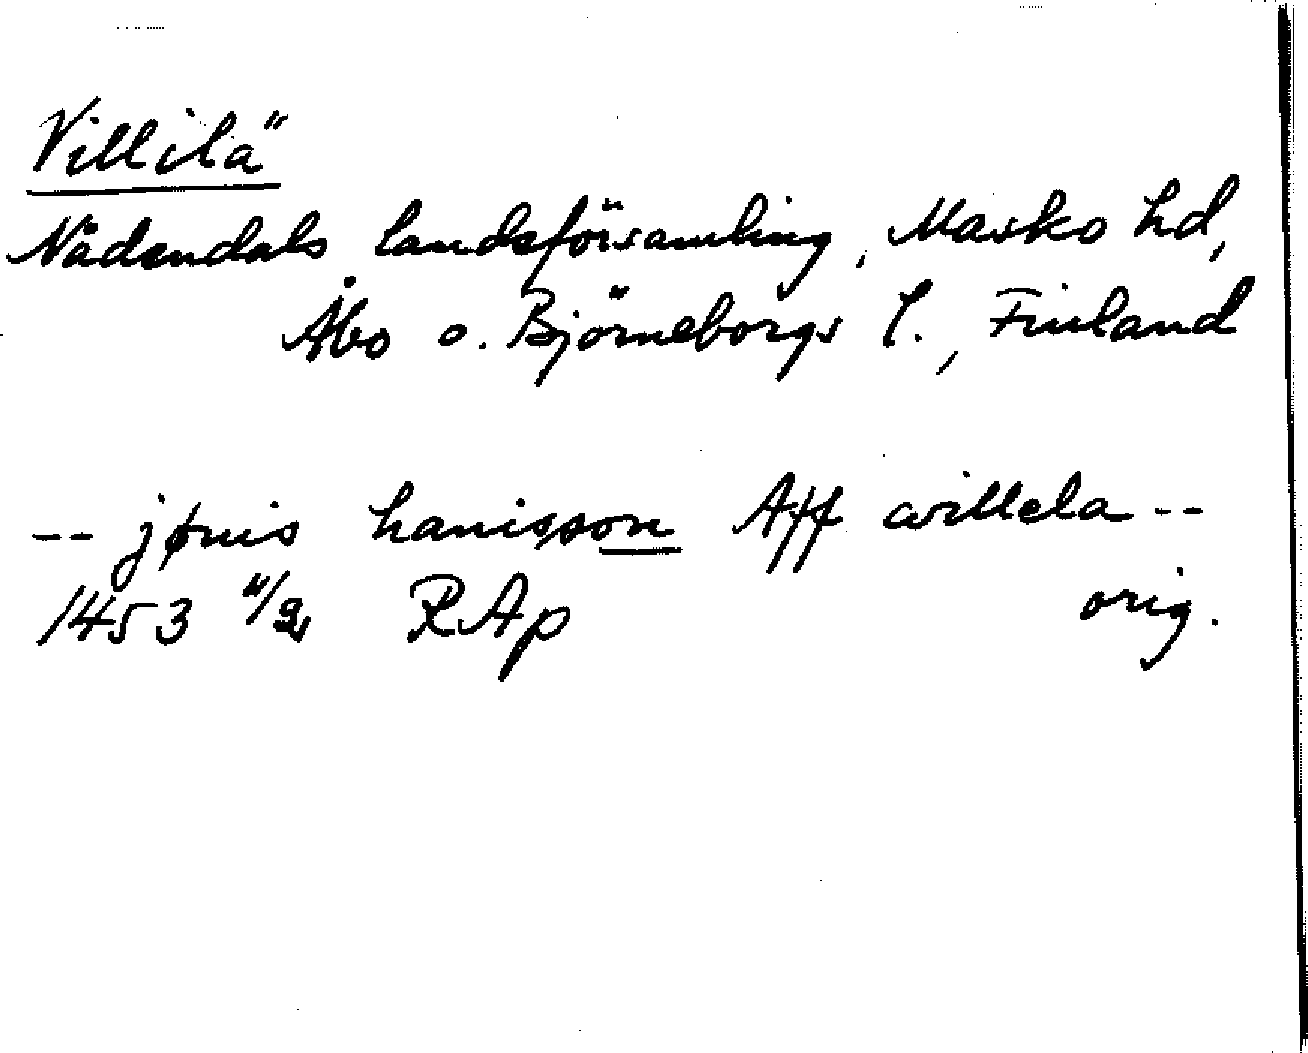 Villilä
Nådendals landsförsamling, Masko hd,
Åbo o. Björneborgs l., Finland
-- jønis hanisson Aff willela --
1453 11/2 RAp orig.